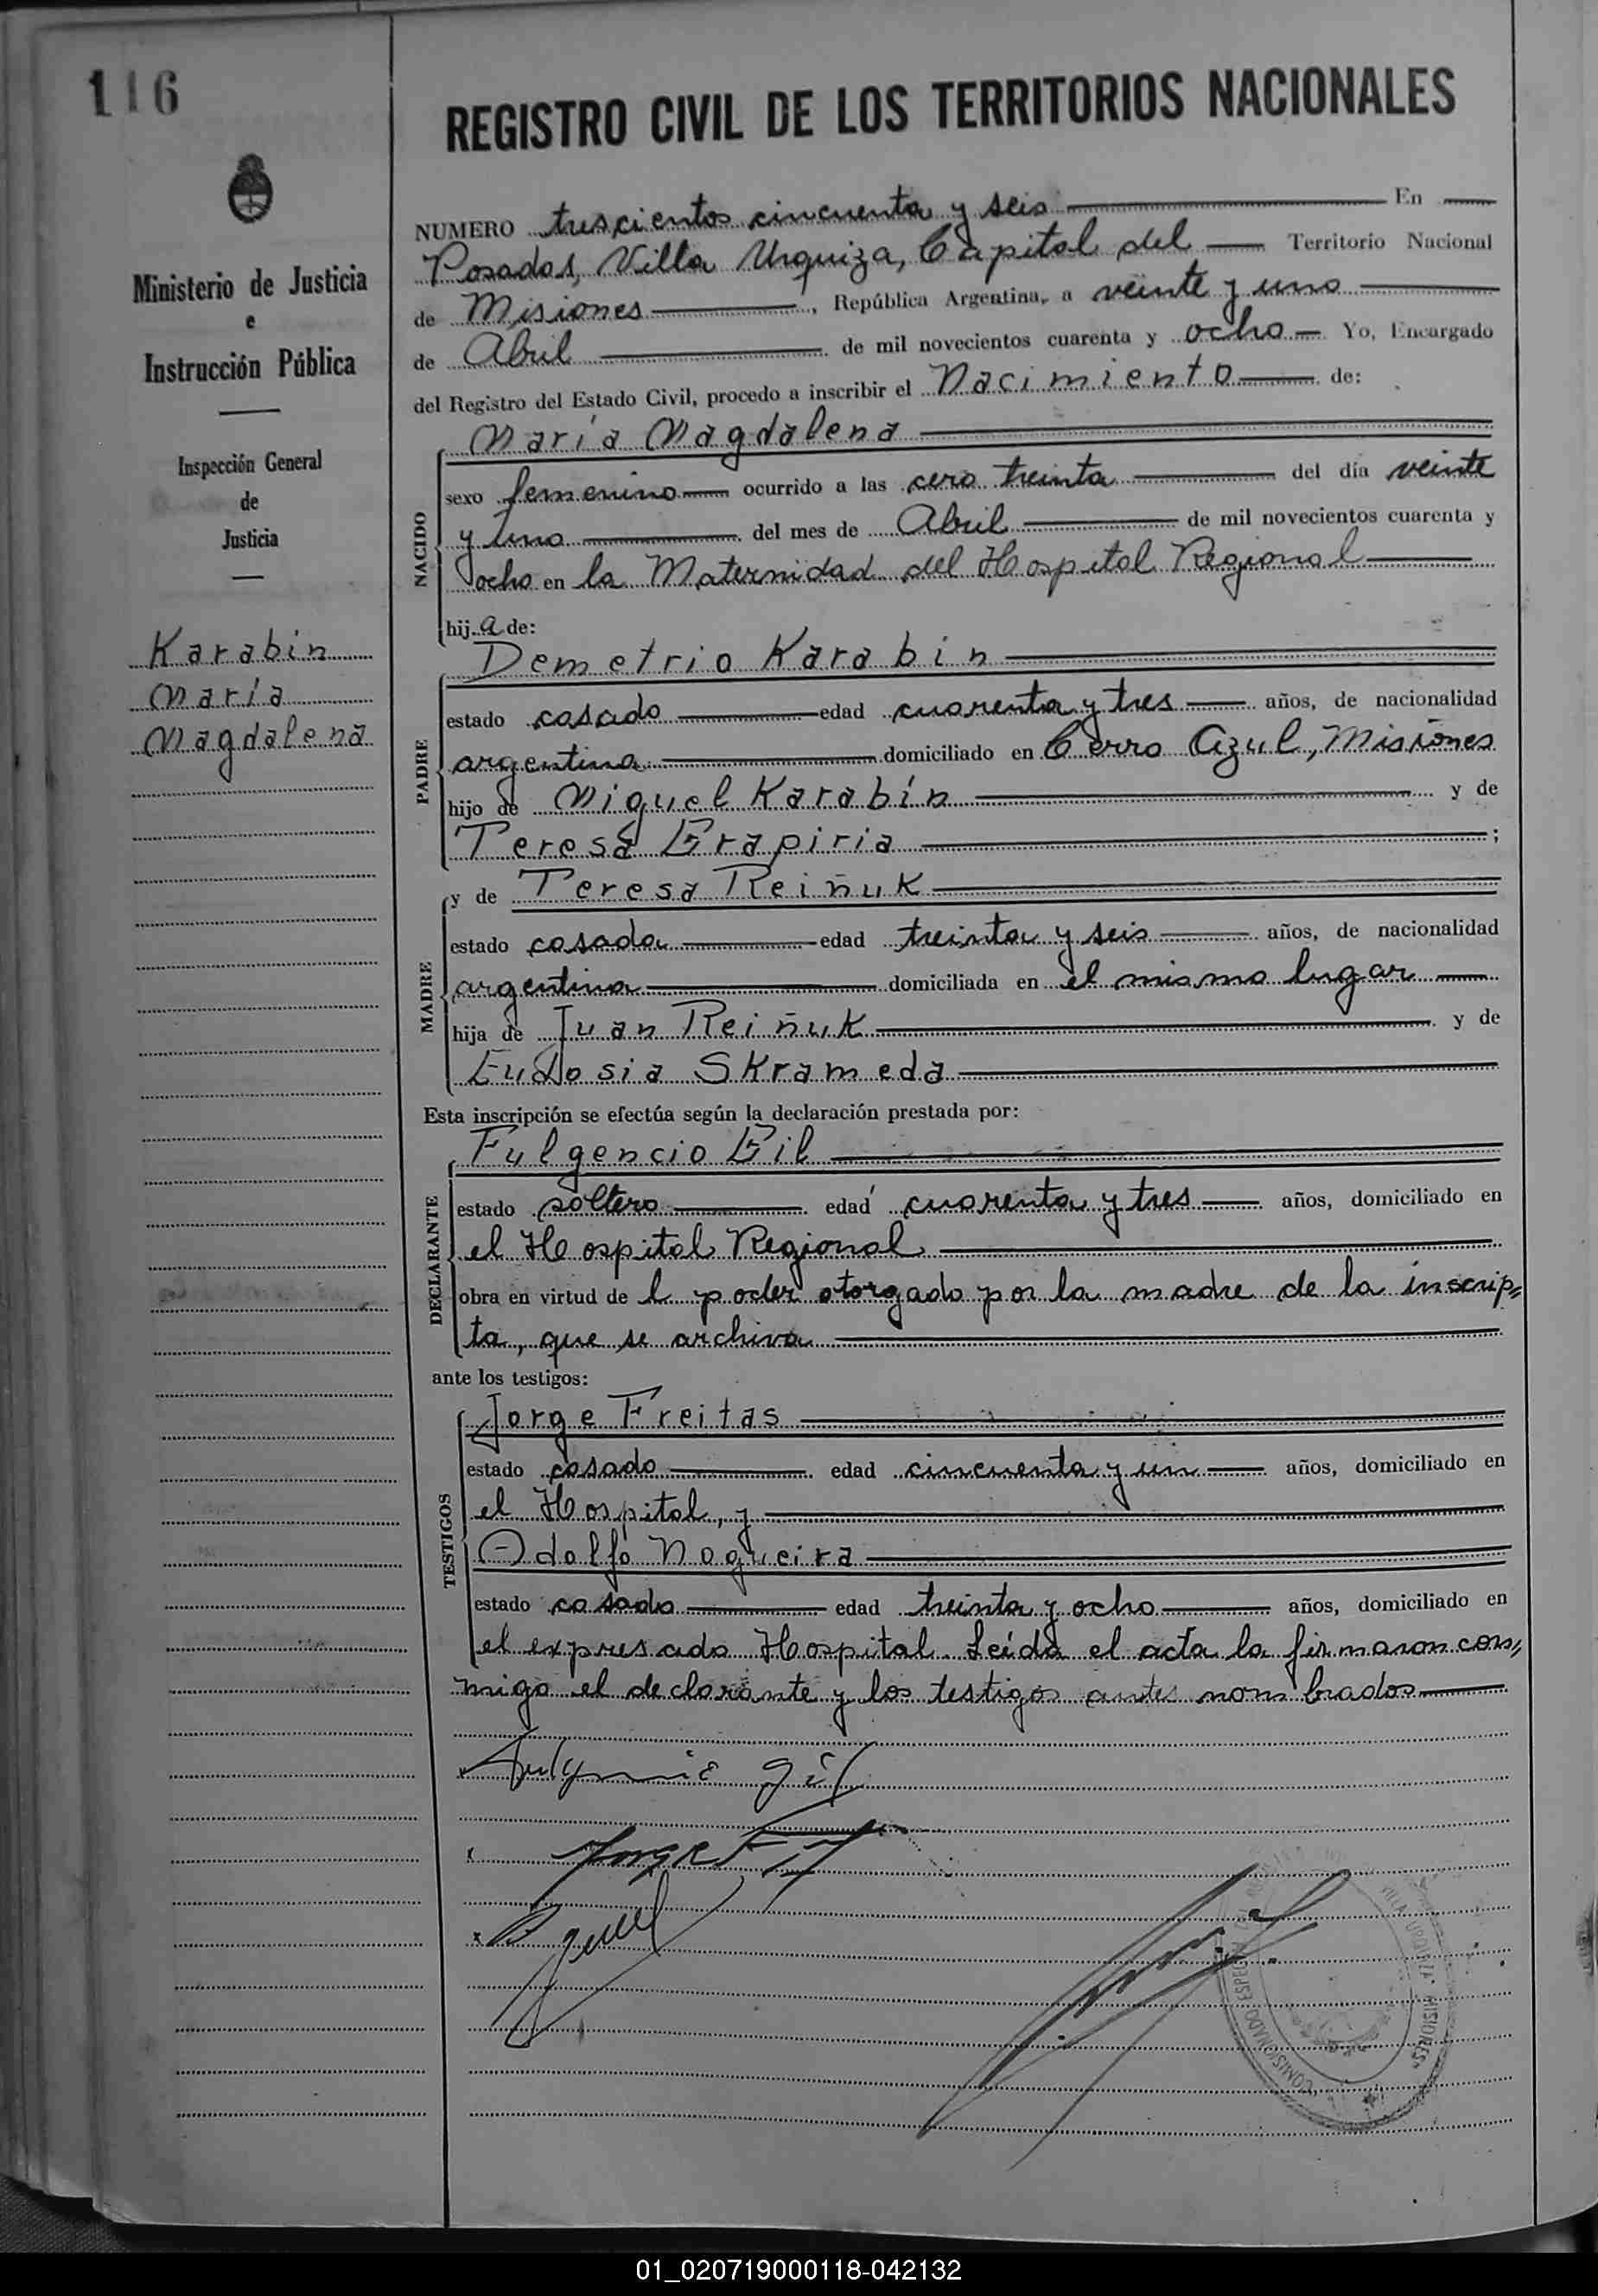 116
REGISTRO CIVIL DE LOS TERRITORIOS NACIONALES
Ministerio de Justicia
e
Instrucción Pública
Inspección General
de
Justicia
Karabin
María
Magdalena
NUMERO trescientos cincuenta y seis En
Posadas, Villa Urquiza, Capital del Territorio Nacional
de Misiones, República Argentina, a veinte y uno
de Abril de mil novecientos cuarenta y ocho Yo, Encargado
del Registro del Estado Civil, procedo a inscribir el Nacimiento de:
NACIDO
María Magdalena
sexo femenino ocurrido a las cero treinta del día veinte
y uno del mes de Abril de mil novecientos cuarenta y
ocho en la Maternidad del Hospital Regional
hija de:
PADRE
Demetrio Karabin
estado casado edad cuarenta y tres años, de nacionalidad
argentina domiciliado en Cerro Azul, Misiones
hijo de Miguel Karabín y de
Teresa Grapiria;
MADRE
y de Teresa Reiñuk
estado casada edad treinta y seis años, de nacionalidad
argentina domiciliada en el mismo lugar
hija de Juan Reiñuk y de
Eudosia Skrameda
Esta inscripción se efectúa según la declaración prestada por:
DECLARANTE
Fulgencio Gil
estado soltero edad cuarenta y tres años, domiciliado en
el Hospital Regional
obra en virtud de l poder otorgado por la madre de la inscrip=
ta, que se archiva
ante los testigos:
TESTIGOS
Jorge Freitas
estado casado edad cincuenta y un años, domiciliado en
el Hospital, y
Adolfo Nogueira
estado casado edad treinta y ocho años, domiciliado en
el expresado Hospital. Leída el acta la firmaron con=
migo el declarante y los testigos antes nombrados
Gil
Jorge
COMISIONADO ESPECIAL VILLA URQUIZA MISIONES
01_020719000118-042132